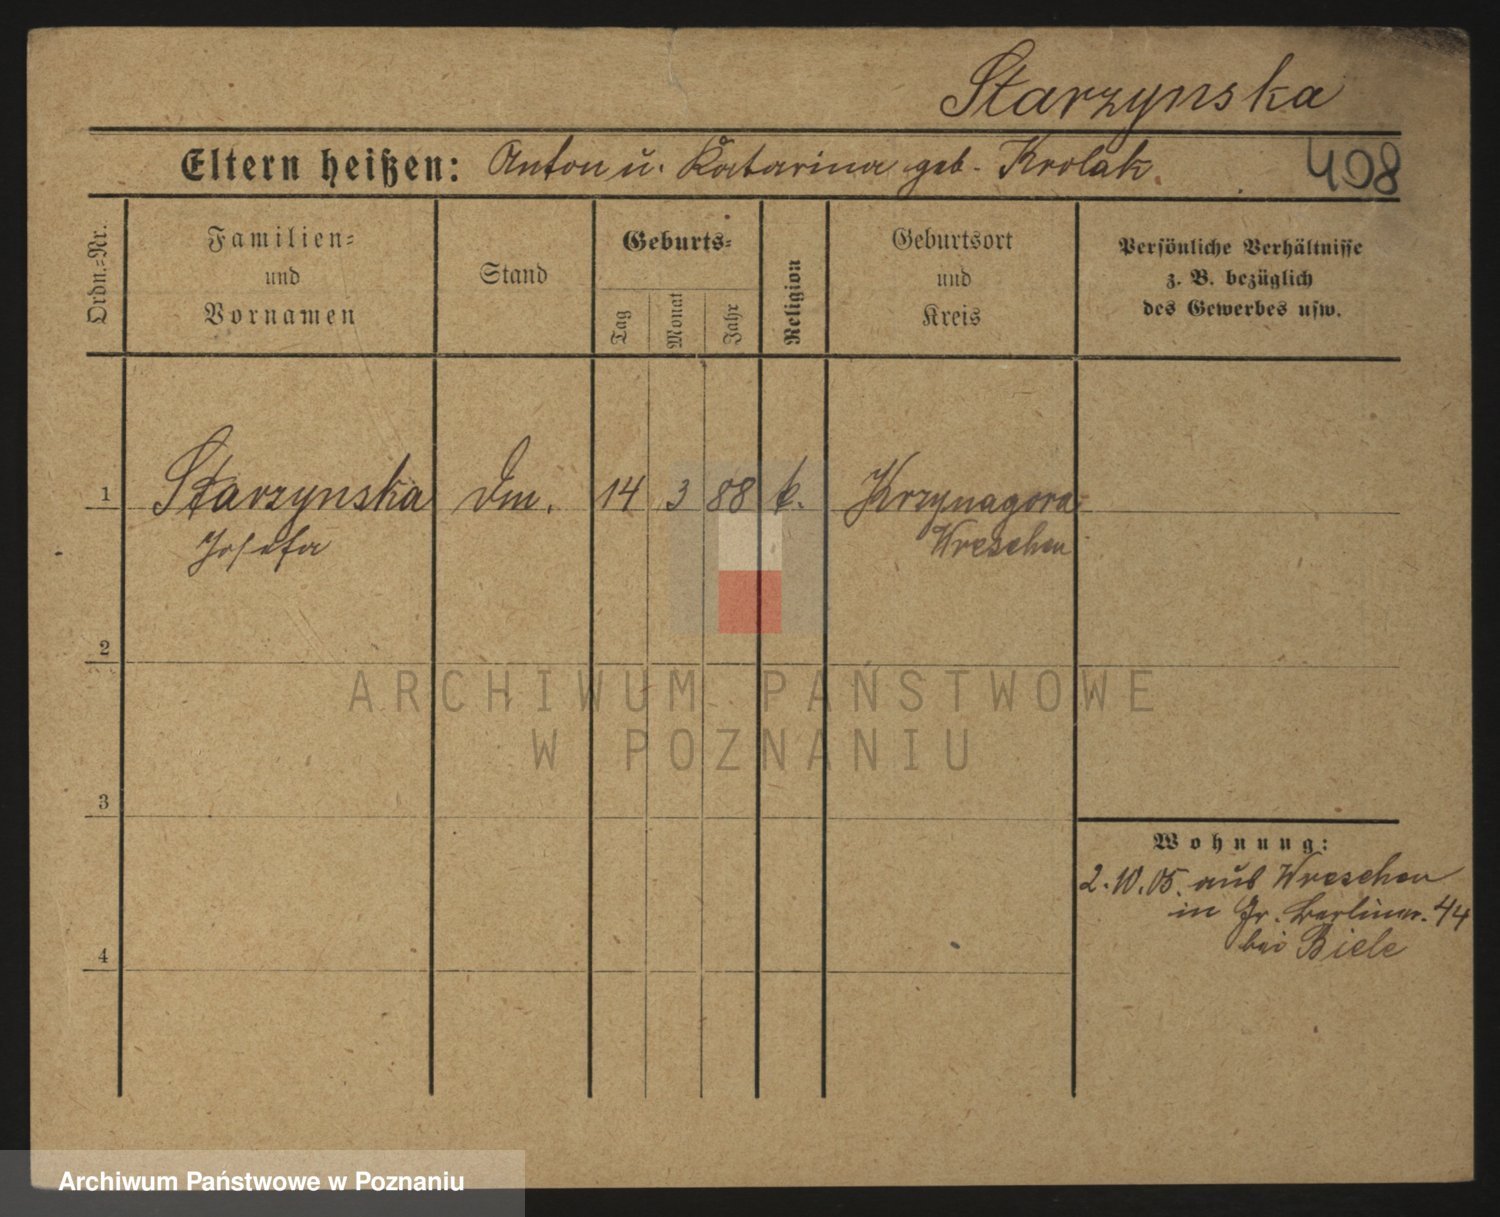 Starzynska
Eltern heißen: Anton u. Katarina geb. Krolak.
408
Ordn.-Nr.
Familien-
und
Vornamen
Stand
Geburts-
Tag
Monat
Jahr
Religion
Geburtsort
und
Kreis
Persönliche Verhältnisse
z. B. bezüglich
des Gewerbes usw.
1 Starzynska Dm. 14 3 88 k. Krzynagora
Josefa Wreschen
2
3
4
Wohnung:
2.10.05. aus Wreschen
in Gr. Berliner. 44
bei Biele
ARCHIWUM PAŃSTWOWE
W POZNANIU
Archiwum Państwowe w Poznaniu